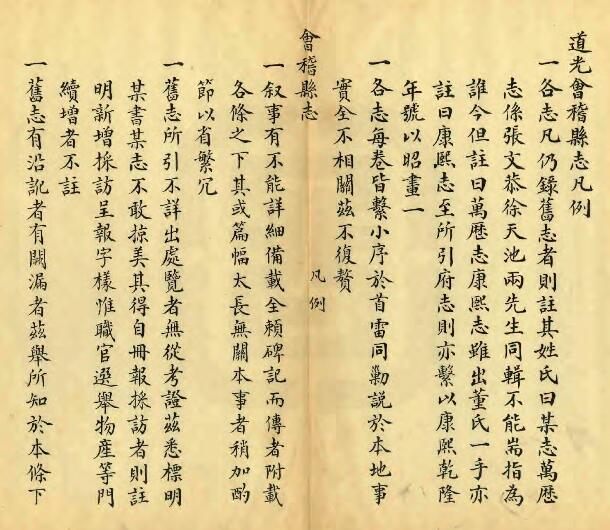 道光會稽縣志凡例
一各志凡仍錄舊志者則註其姓氏曰某志萬厯
志係張文恭徐天池兩先生同輯不能耑指為
誰今但註曰萬厯志康熙志雖出董氏一手亦
註曰康熙志至所引府志則亦繫以康熙乾隆
年號以昭畫一
一各志每卷皆繫小序於首雷同勦說於本地事
實全不相關茲不復贅
會稽縣志
凡例
一叙事有不能詳細備載全賴碑記而傳者附載
各條之下其或篇幅太長無關本事者稍加酌
節以省繁冗
一舊志所引不詳出處覽者無從考證茲悉標明
某書某志不敢掠美其得自冊報採訪者則註
明新增採訪呈報字樣惟職官選舉物産等門
續增者不註
一舊志有沿訛者有闕漏者茲舉所知於本條下